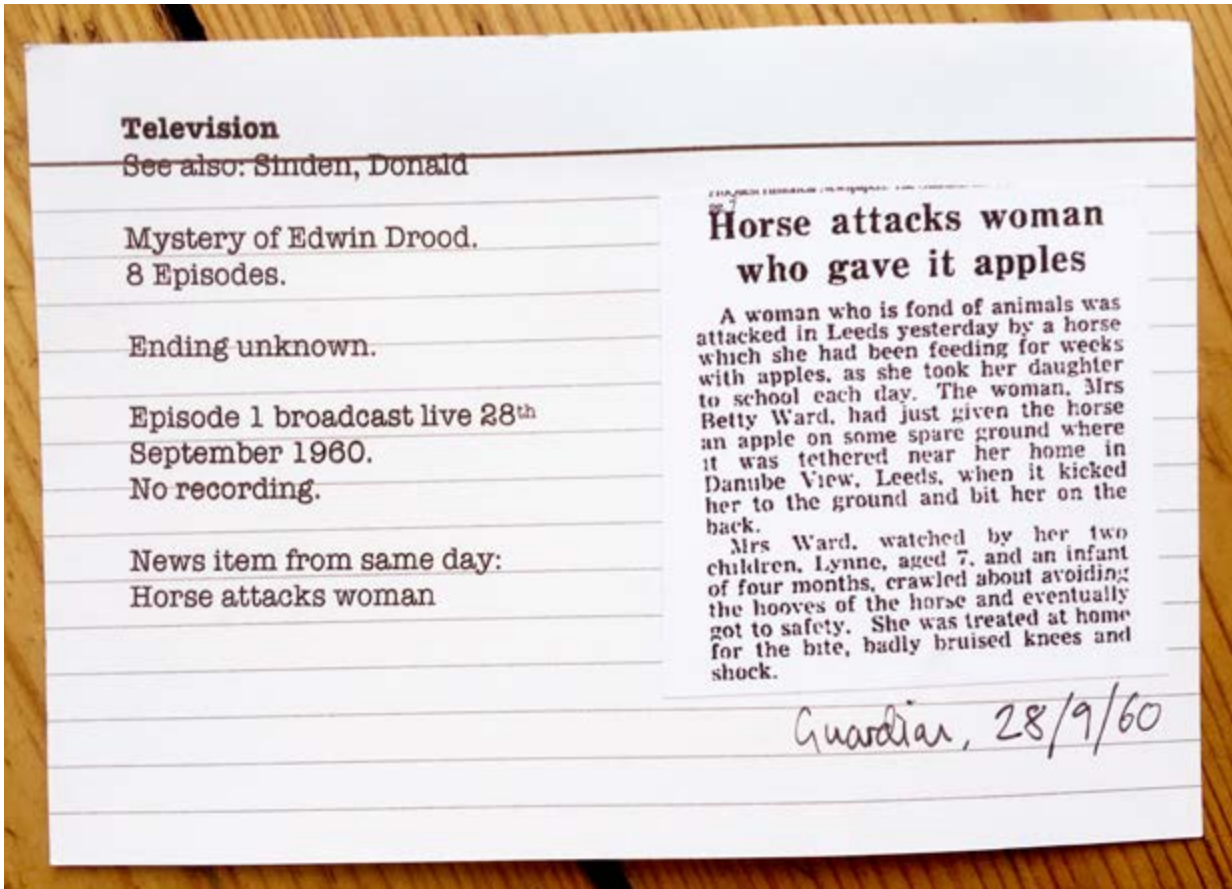 Television
See also: Sinden, Donald
Mystery of Edwin Drood.
8 Episodes.
Ending unknown.
Episode 1 broadcast live 28th
September 1960.
No recording.
News item from same day:
Horse attacks woman
Horse attacks woman
who gave it apples
A woman who is fond of animals was
attacked in Leeds yesterday by a horse
which she had been feeding for weeks
with apples, as she took her daughter
to school each day. The woman, Mrs
Betty Ward, had just given the horse
an apple on some spare ground where
it was tethered near her home in
Danube View, Leeds, when it kicked
her to the ground and bit her on the
back.
Mrs Ward, watched by her two
children, Lynne, aged 7, and an infant
of four months, crawled about avoiding
the hooves of the horse and eventually
got to safety. She was treated at home
for the bite, badly bruised knees and
shock.
Guardian, 28/9/60